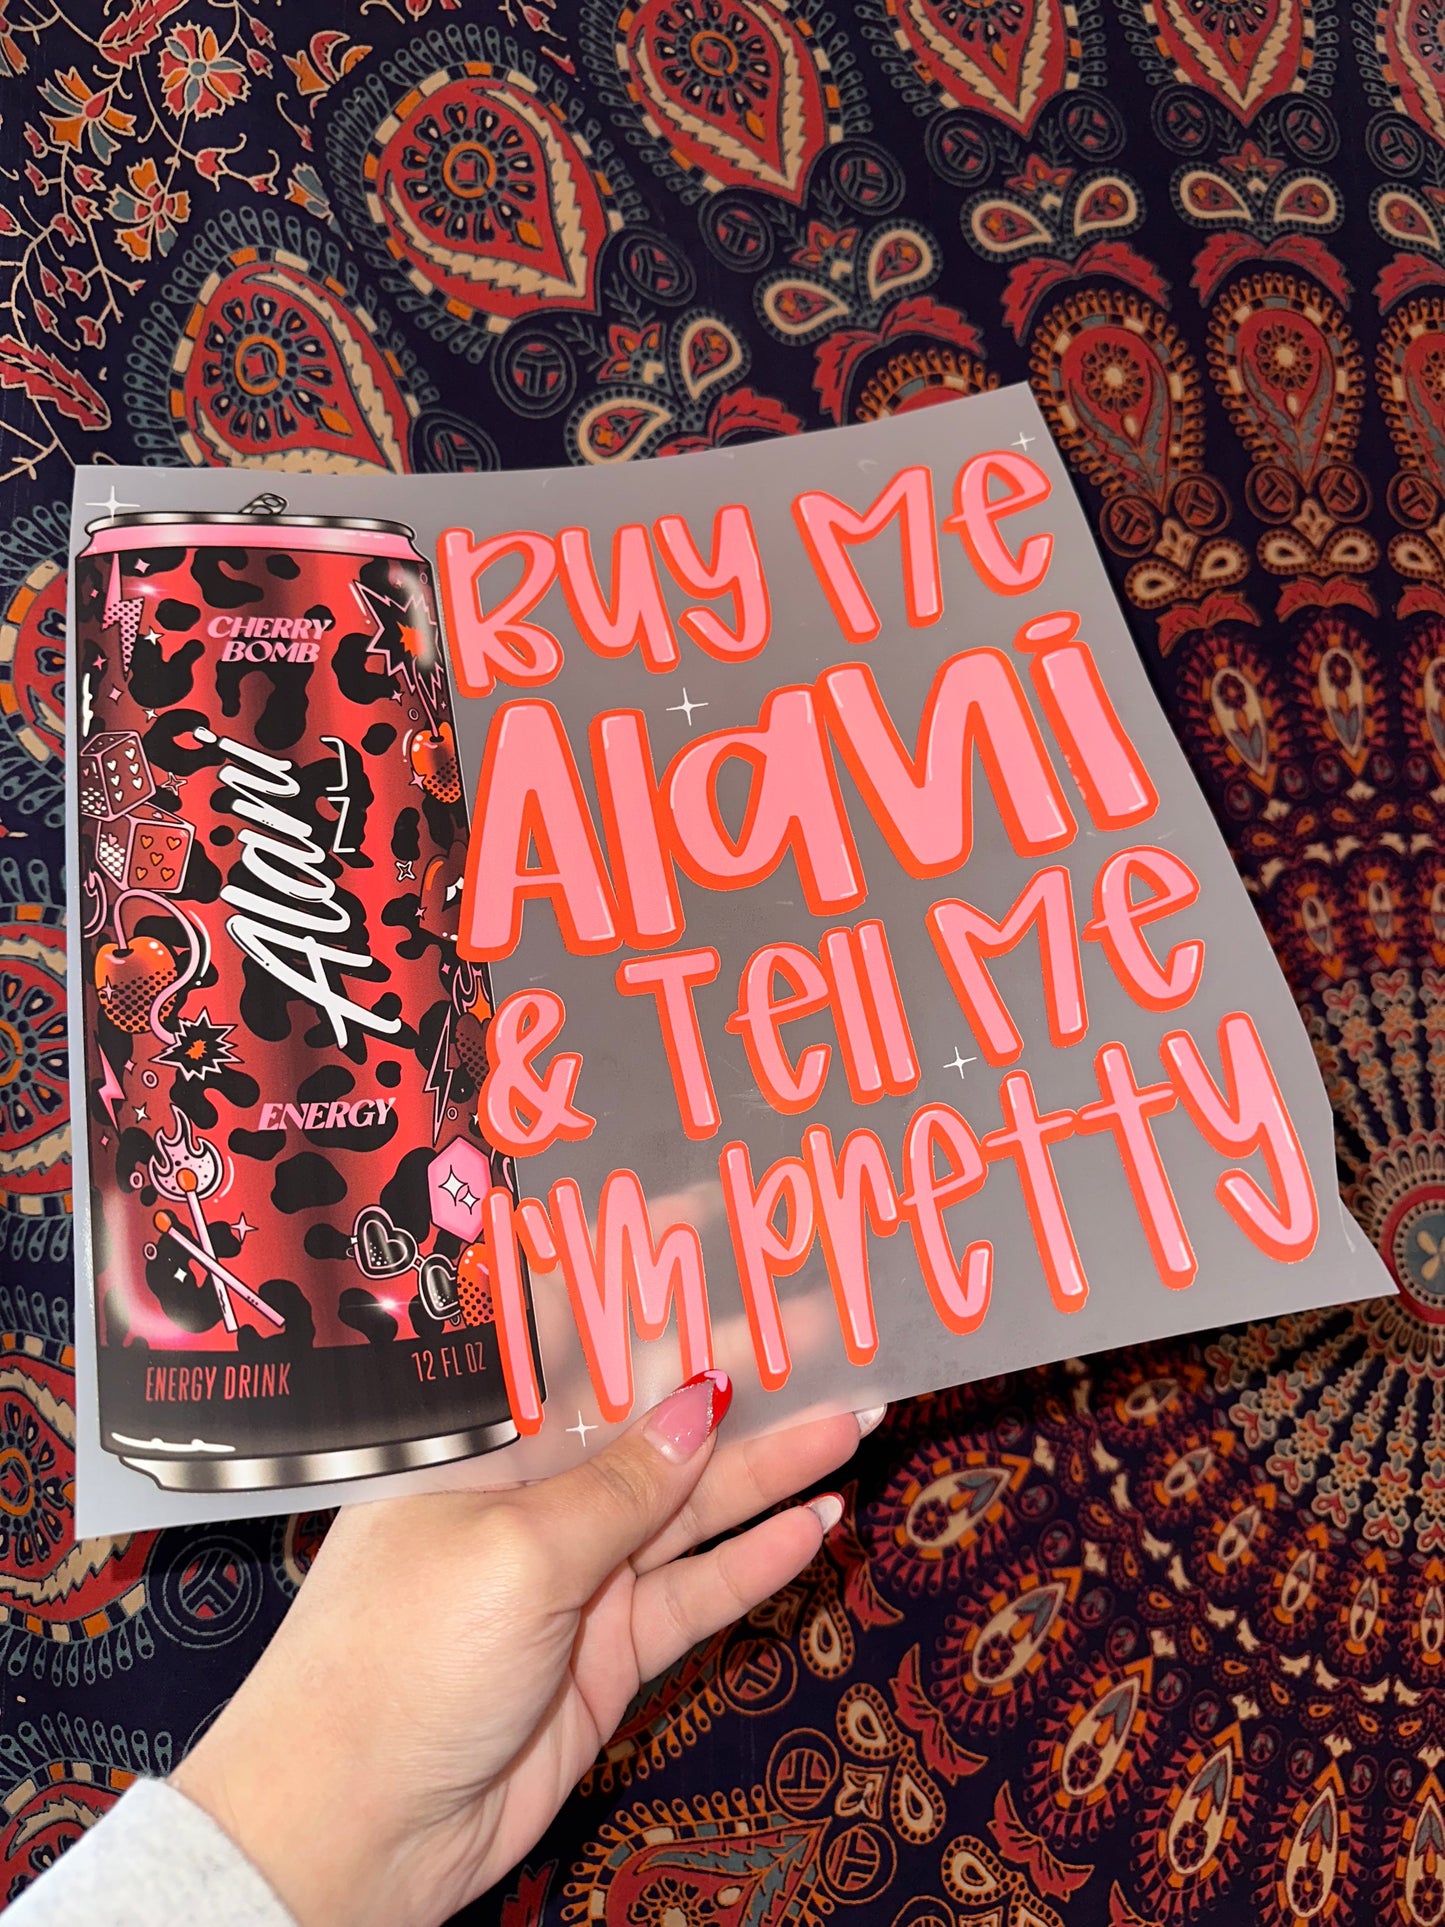 CHERRY
BOMB
Alani
NU
ENERGY
ENERGY DRINK
12 FL OZ
Buy Me
Alani
& Tell Me
I'm Pretty